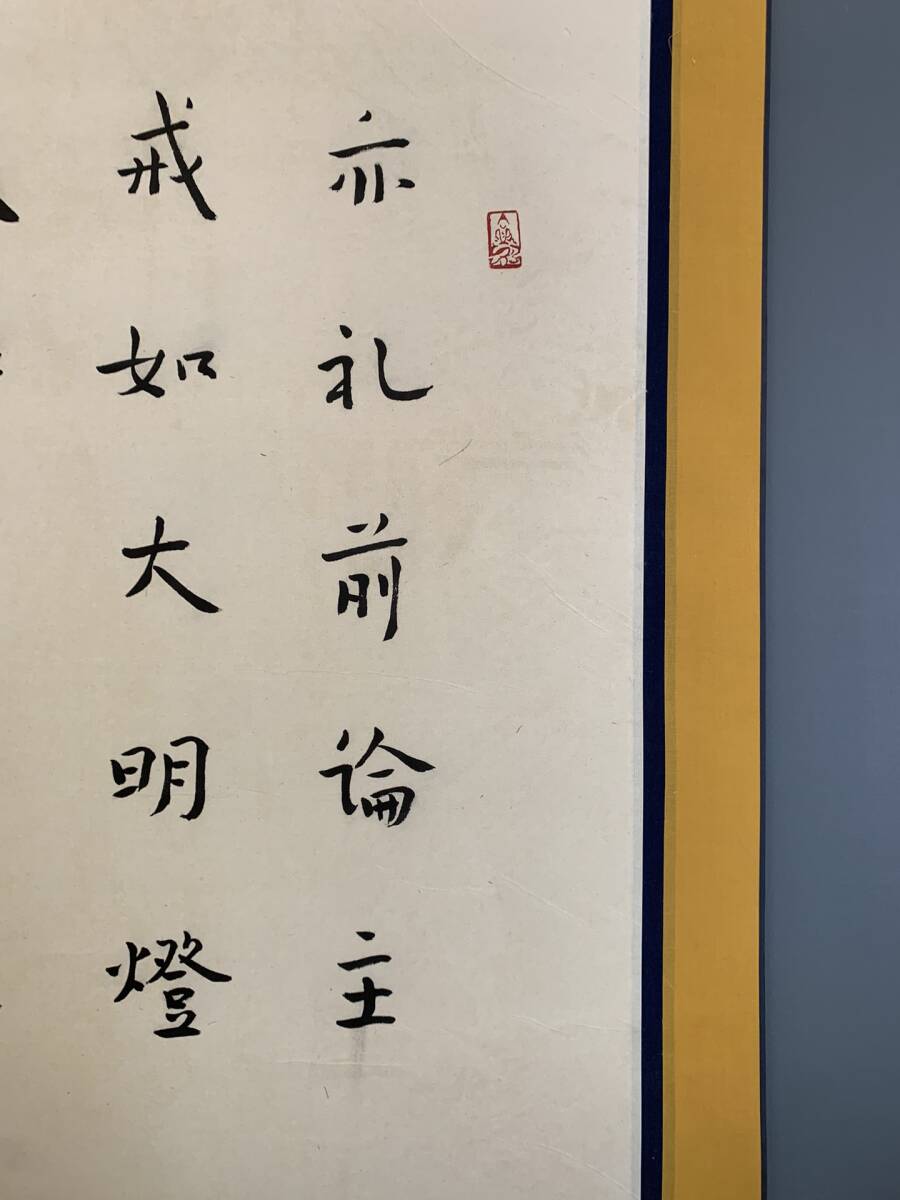 亦礼前論主
戒如大明燈